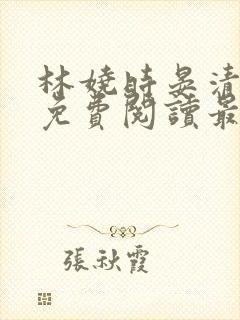 林嬈時晏清
免費閱讀最
張秋霞